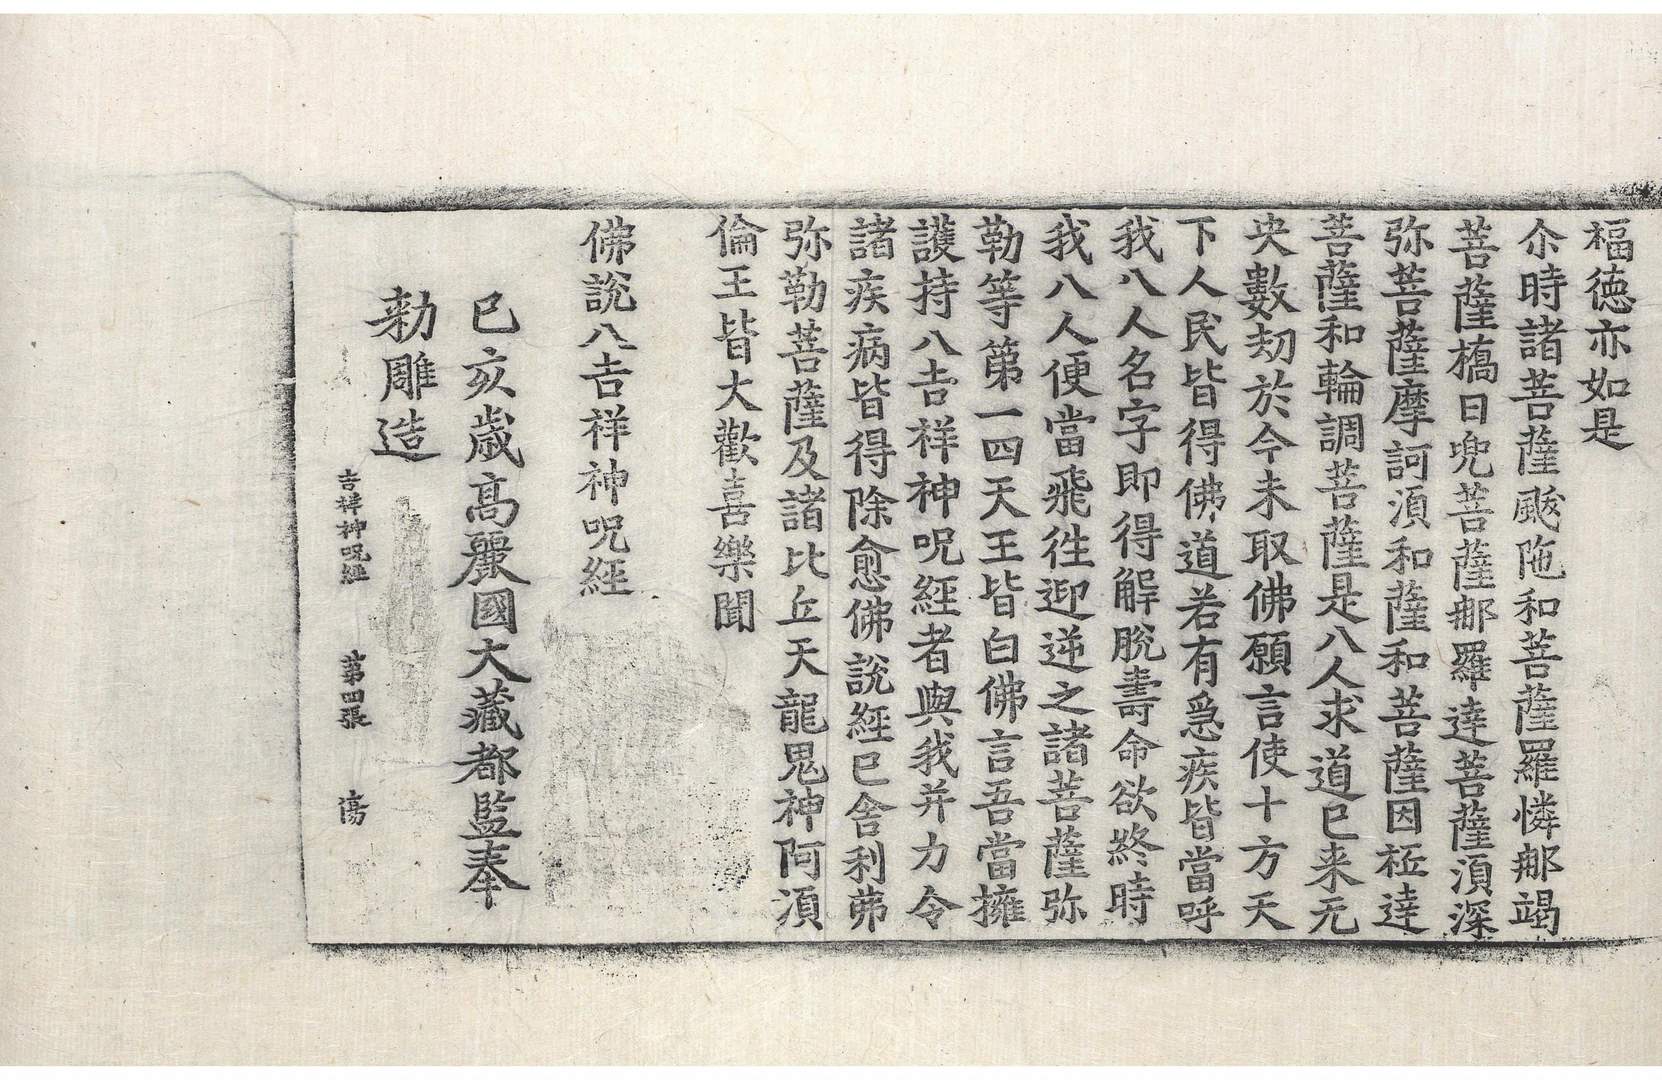 福德亦如是
尒時諸菩薩颰陁和菩薩羅憐那竭
菩薩橋日兜菩薩那羅達菩薩湏深
弥菩薩摩訶湏和薩和菩薩因坻達
菩薩和輪調菩薩是八人求道已来无
央數劫於今未取佛願言使十方天
下人民皆得佛道若有急疾皆當呼
我八人名字即得解脫壽命欲終時
我八人便當飛徃迎逆之諸菩薩弥
勒等第一四天王皆白佛言吾當擁
護持八吉祥神呪經者與我并力令
諸疾病皆得除愈佛說經已舍利弗
弥勒菩薩及諸比丘天龍鬼神阿湏
倫王皆大歡喜樂聞
佛說八吉祥神呪經
己亥歲高麗國大藏都監奉
勑雕造
吉祥神呪經 第四張 湯